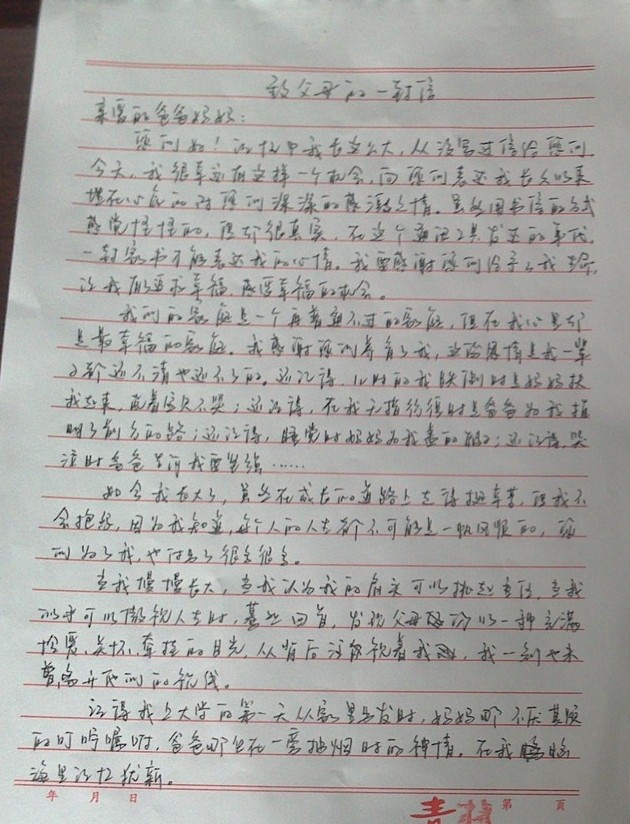 致父母的一封信
亲爱的爸爸妈妈：
你们好！记忆中我长这么大，从没写过信给你们
今天，我很幸运有这样一个机会，向你们表达我长久以来
埋在心底的对你们深深的感激之情。虽然用书信的方式
感觉怪怪的，但却很真实，在这个通讯工具发达的年代，
一封家书才能表达我的心情。我要感谢你们给予了我生命，
让我有追求幸福，感受幸福的机会。
我们的家庭是一个再普通不过的家庭，但在我心里却
是最幸福的家庭。我感谢你们养育了我，这份恩情是我一辈
子都还不清也还不了的。还记得，小时的我跌倒时是妈妈扶
我起来，哄着宝贝不哭；还记得，在我无指彷徨时是爸爸为我指
明了前方的路；还记得，睡觉时妈妈为我盖的被子；还记得，哭
泣时爸爸告诉我要坚强……
如今我长大了，虽然在成长的道路上走得挺辛苦，但我不
会抱怨，因为我知道，每个人的人生都不可能是一帆风顺的，你
们为了我，也付出了很多很多。
当我慢慢长大，当我认为我的肩头可以挑起责任，当我
以为可以傲视人生时，蓦然回首，发现父母仍以一种充满
怜爱、关怀、牵挂的目光，从背后注视着我，我一刻也未
曾离开他们的视线。
记得我上大学的第一天从家里出发时，妈妈那不厌其烦
的叮咛嘱咐，爸爸那坐在一旁抽烟时的神情。在我脑
海里记忆犹新。
年 月 日
第 页